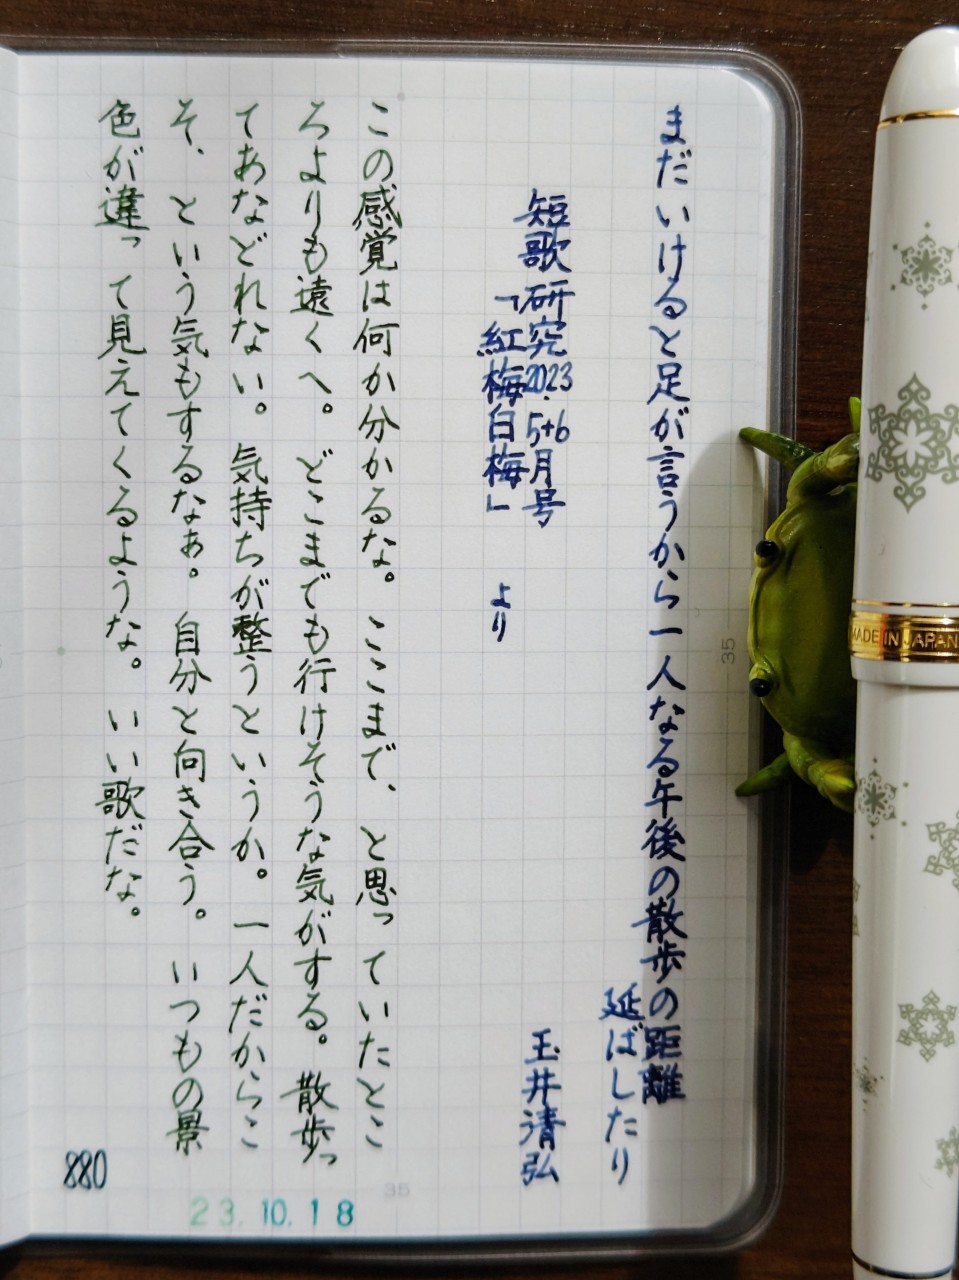 まだいけると足が言うから一人なる午後の散歩の距離
延ばしたり
玉井清弘
短歌研究2023.5+6月号
「紅梅白梅」より
この感覚は何か分かるな。ここまで、と思っていたとこ
ろよりも遠くへ。どこまでも行けそうな気がする。散歩っ
てあなどれない。気持ちが整うというか。一人だからこ
そ、という気もするなぁ。自分と向き合う。いつもの景
色が違って見えてくるような。いい歌だな。
880
23.10.18
35
35
MADE IN JAPAN